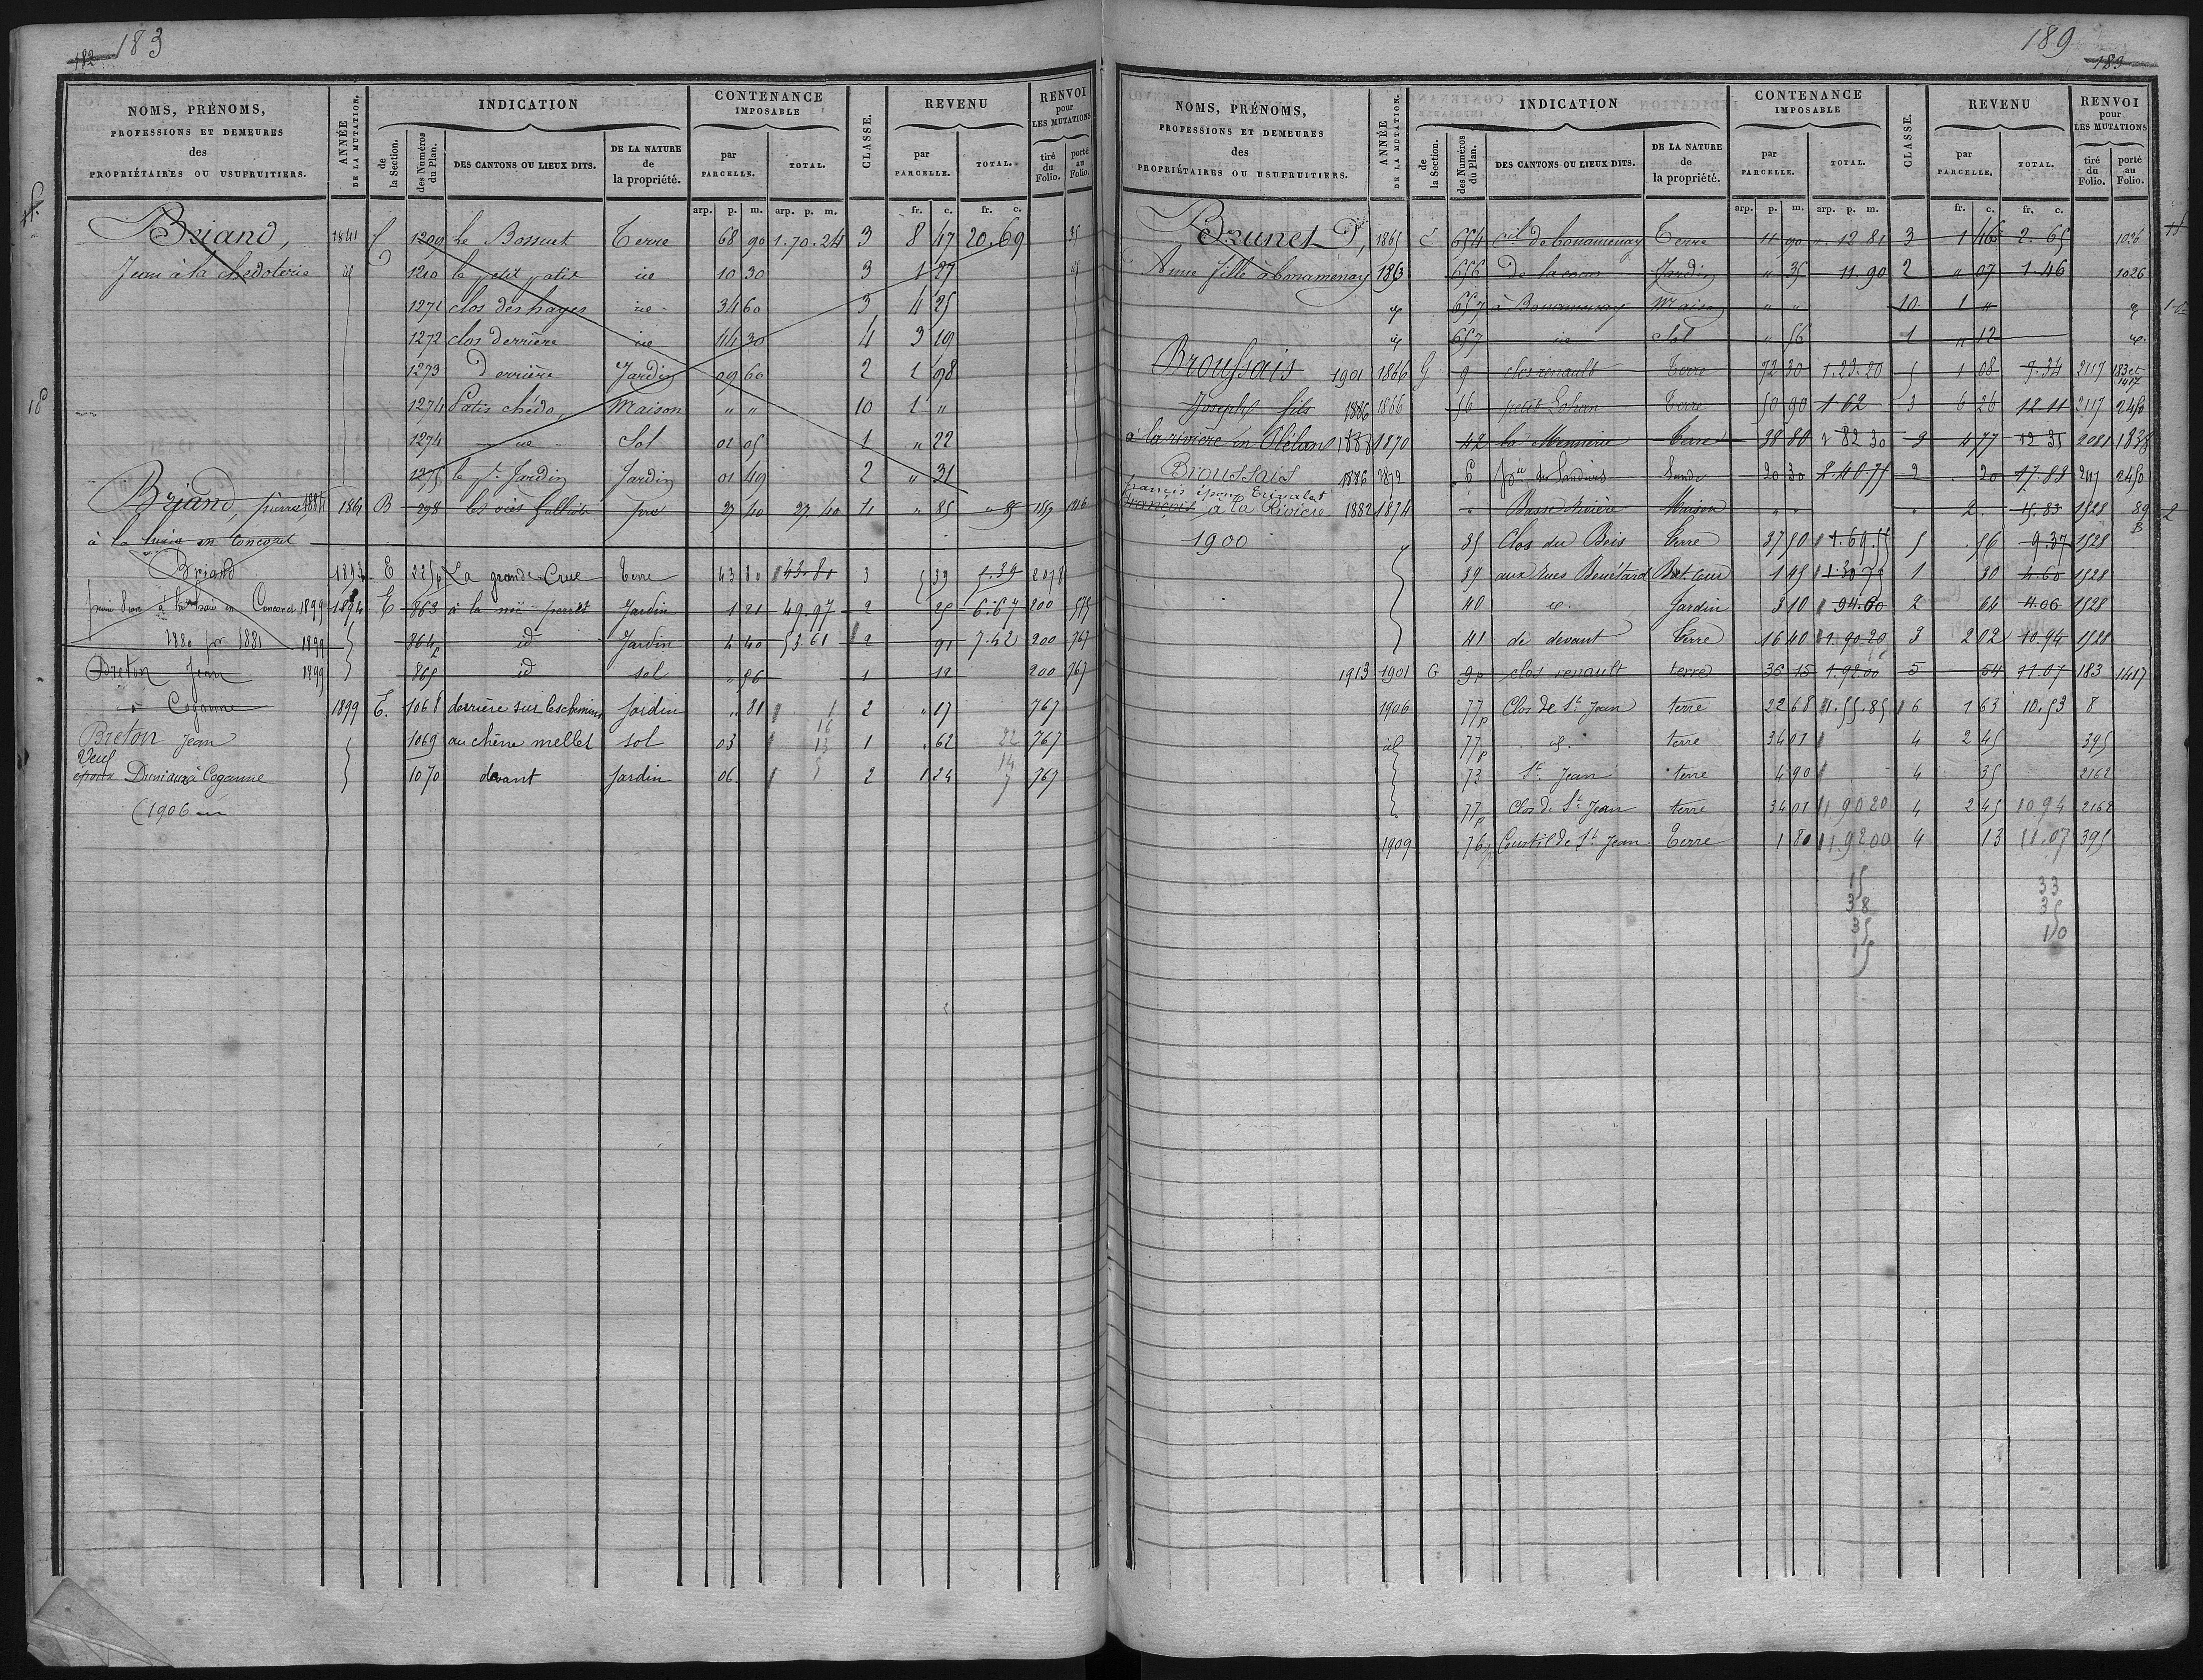 183
182
NOMS, PRÉNOMS,
PROFESSIONS ET DEMEURES
des
PROPRIÉTAIRES OU USUFRUITIERS.
ANNÉE
DE LA MUTATION.
INDICATION
de
la Section.
des Numéros
du Plan.
DES CANTONS OU LIEUX DITS.
DE LA NATURE
de
la propriété.
CONTENANCE
IMPOSABLE
par
PARCELLE.
TOTAL.
CLASSE.
REVENU
par
PARCELLE.
TOTAL.
RENVOI
pour
LES MUTATIONS
tiré
du
Folio.
porté
au
Folio.
arp. p. m. arp. p. m. fr. c. fr. c.
Briand, 1841 C 1209 Le Bossuet Terre 68 90 1.70.24 3 8 47 20.69 35
Jean à la chedoterie id 1210 le petit patis id 10 30 3 1 27 id
1271 clos des hayes id 34 60 3 4 25
1272 clos derrière id 44 30 4 3 19
1273 Derrière Jardin 09 60 2 1 98
1274 Patis chédo, Maison " " 10 1 "
18
1274 id Sol 01 05 1 " 22
1275 le pt Jardin Jardin 01 49 2 " 31
Briand, pierre, 1884 1861 B 298 les vies pré 27 40 27 40 4 " 85 " 85 159
à la en Concoret
Briand 1893 E 225p La grande Crue terre 43 80 43.80 3 5 39 5.39 2078
à la en Concoret 1899 1894 E 863 à la noë perret Jardin 1 21 49.97 2 25 6.67 200 575
1880 pr 1881 1899 864p id Jardin 4 40 53.61 2 91 7.42 200 767
Breton Jean 1899 865 id sol " 56 1 12 200 767
à Coganne 1899 E. 1068 derrière sur les chemins Jardin " 81 2 " 17 767
Breton Jean 1069 au chêne mellet sol 03 1 " 62 767
Veuf
époux Duniaux à Coganne 1070 devant Jardin 06 2 1 24 767
(1906 en
189
183
NOMS, PRÉNOMS,
PROFESSIONS ET DEMEURES
des
PROPRIÉTAIRES OU USUFRUITIERS.
ANNÉE
DE LA MUTATION.
INDICATION
de
la Section.
des Numéros
du Plan.
DES CANTONS OU LIEUX DITS.
DE LA NATURE
de
la propriété.
CONTENANCE
IMPOSABLE
par
PARCELLE.
TOTAL.
CLASSE.
REVENU
par
PARCELLE.
TOTAL.
RENVOI
pour
LES MUTATIONS
tiré
du
Folio.
porté
au
Folio.
arp. p. m. arp. p. m. fr. c. fr. c.
Brunet, 1865 C 654 de bonamenay Terre 11 90 " 12 81 3 1 46 2.65 1026
Anne fille à bonamenay 1863 656 De la cour Jardin " 35 11.90 2 " 07 1.46 1026
id 657 à Bonamenay Maison " " 10 1 " id
id 657 id Sol " 56 1 " 12 id
Broussais 1901 1866 G 9 clos renault Terre 72 30 1.23.20 5 1 08 7.34 2117 183 et 1417
Joseph fils 1886 1866 56 petit Lohan Terre 50 90 1 62 3 6 26 12.11 2117 2450
à la rivière en Plélan 1888 1870 42 la Mennerie Terre 38 80 1 82 30 3 4 77 12 35 2081 1838
Broussais 1886 1872 6 Lande 20 30 2 20 17.88 2117 2450
francis époux Trévalet
françois à la Rivière 1882 1874 Basse Rivière Maison " " 2. 15.83 1528 89
B
1900 35 Clos du Bois Terre 37 50 1.69.55 5 56 9.37 1528
39 aux rues Bouétard Bat. Cour 1 45 1 30 1528
40 id. Jardin 3 10 94.60 2 64 4.06 1528
41 de devant Terre 16 40 1.90 20 3 2 02 10.94 1528
1913 1901 G 9p clos renault terre 36 15 1.92.00 5 54 11.07 183 1417
1906 77p Clos de St Jean terre 22 68 1.55.85 6 1 63 10.53 8
id 77p id. terre 34 01 4 2 45 395
73 St Jean terre 4 90 4 35 2162
77p Clos de St Jean terre 34 01 1 90 20 4 2 45 10 94 2162
1909 76p Courtil de St Jean Terre 1 80 1 92 00 4 13 11.07 395
15 33
38 35
35 110